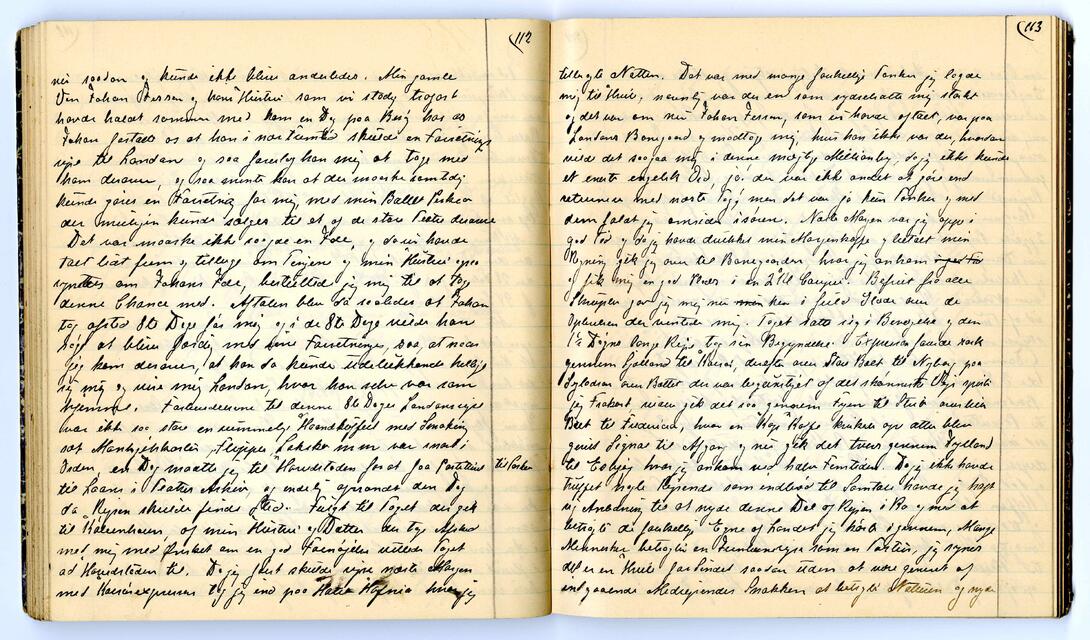 112
nu saadan og kunde ikke blive anderledes. Min gamle
Ven Johan Iversen og hans Hustru som vi stadig trofast
havde holdt sammen med kom en Dag paa Besøg hos os
Johan fortalte os at han i nær Fremtid skulde en Forretnings
rejse til London og saa foreslog han mig at tage med
ham derover, og saa mente han at der maaske samtidig
kunde gøres en Forretning for mig, med min Ballet
der muligvis kunde sælges til et af de store Teatre derovre
Det var maaske ikke saa gal en Ide, og da vi havde
talt lidt frem og tilbage om Tingene og min Hustru ogsaa
syntes om Johans Ide, besluttede jeg mig til at tage
denne Chance med. Aftalen blev da saaledes at Johan
tog afsted 8te Dage før mig og i de 8te Dage vilde han
søge at blive færdig med sine Forretninger, saa at naar
jeg kom derover, at han da kunde udelukkende hellige
sig mig og vise mig London, hvor han selv var som
hjemme. Forberedelserne til denne 8te Dages Londonrejse
var ikke saa store en rummelig Haandkuffert med Smoking
sat Manchetskjorter, Flipper, Sokker m.m. var snart i
Orden, en Dag maatte jeg til Hovedstaden for at faa Partituret
til Laans i Teatrets Arkiv, og endelig oprandt den Dag
da Rejsen skulde finde Sted. Fulgt til Toget der gik
til København, af min Hustru og Datter der tog Afsked
med mig med Ønsket om en god Fornøjelse rullede Toget
ad Hovedstaden til. Da jeg først skulde rejse næste Morgen
med Korsørexpressen tog jeg ind paa Hotel Hafnia hvor jeg
113
tilbragte Natten. Det var med mange forskellige Tanker jeg lagde
mig til Hvile, navnlig var der en som sysselsatte mig stærkt
og det var om nu Johan Iversen, som vi havde aftalt, var paa
Londons Banegaard og modtog mig, hvis han ikke var der, hvordan
vilde det saa gaa mig i denne mægtige Millionby, da jeg ikke kunde
et eneste engelsk Ord, ja! der var ikke andet at gøre end
returnere med næste Tog, men det var jo kun Tanker og med
dem faldt jeg omsider i Søvn. Næste Morgen var jeg oppe i
god Tid og da jeg havde drukket min Morgenkaffe og betalt min
Regning gik jeg over til Banegaarden, hvor jeg ankom
og fik mig en god Plads i en 2 Kl Coupe. Befriet fra alle
Skrupler gav jeg mig nu hen i fuld Glæde over de
Oplevelser der ventede mig. Toget satte sig i Bevægelse og den
1½ Døgns lange Rejse tog sin Begyndelse. Expressen foer de rask
gennem Sjælland til Korsør, derefter over Store Bælt til Nyborg, paa
Sejladsen over Bæltet der var begunstiget af det skønneste Vejr, spiste
jeg Frokost, videre gik det saa gennem Fyen til Strib over Lille
Bælt til Fredericia, hvor en Kop Kaffe og atter blev
givet Signal til Afgang og nu gik det tværs gennem Jylland
til Esbjerg hvor jeg ankom ved halv Femtiden. Da jeg ikke havde
truffet nogle Rejsende som indlod til Samtale havde jeg haft
rig Anledning til at nyde denne Del af Rejsen i Ro og mer at
betragte de forskellige Egne af Landet jeg kørte igennem, Mange
Mennesker betragter en Jernbanerejse som en Tortur, jeg synes
det er en Hvile forbundet saadan uden at være generet af
indgaaende Medrejsendes Snakken at betragte Naturen og nyde